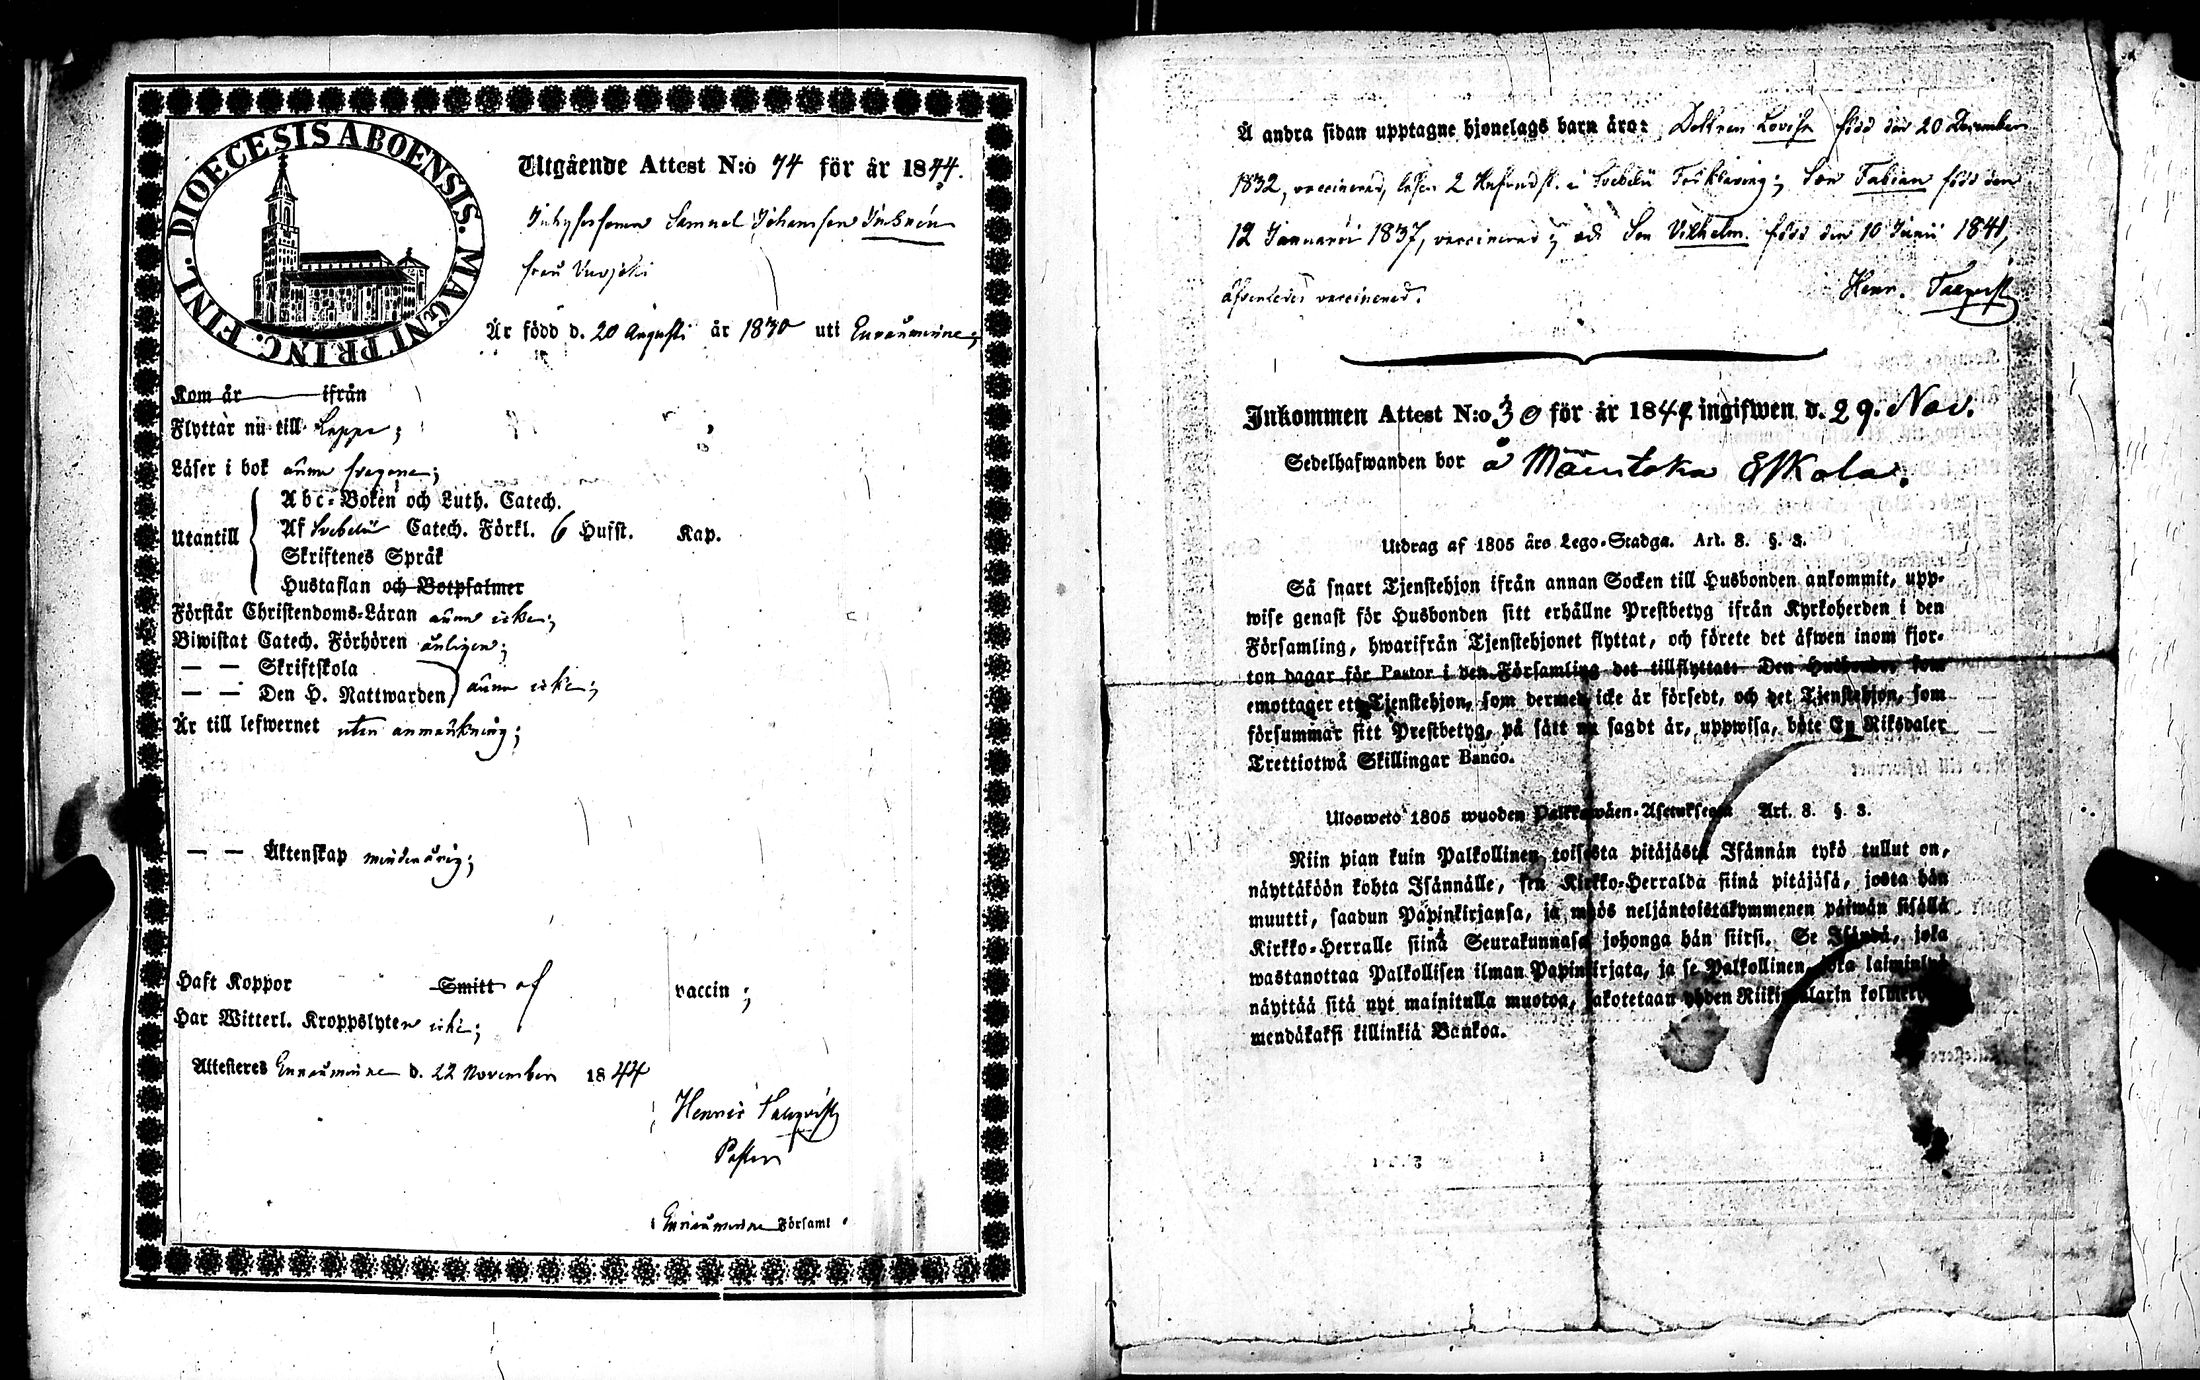 DIOECESIS ABOENSIS. MAGNI PRINC. FINL.
Utgående Attest N:o 74 för år 1844.
Inhysessonen Samuel Johansson
från
Är född d. 20 Augusti år 1830 uti Enräumäne;
Kom år ifrån
Flyttar nu till Loppe;
Läser i bok ännu svagare;
Abc-Boken och Luth. Catech.
Utantill Af Svebelii Catech. Förkl. 6 Hufst. Kap.
Skriftenes Språk
Hustaflan och Botpsalmer
Förstår Christendoms-Läran ännu icke;
Biwistat Catech. Förhören årligen;
— — Skriftskola
— — Den H. Nattwarden ännu icke;
Är till lefwernet utan anmärkning;
— — Äktenskap minderårig;
Haft Koppor Smitt af vaccin;
Har Witterl. Kroppslyten icke;
Attesteres d. 22 November 1844
Henric
Pastor
Församl.
Å andra sidan upptagne hjonelags barn äro: Dottren Lovisa född den 20 December
1832, vaccinerad, läser 2 Hufvudst. i Svebelii Förklaring; Son Fabian född den
12 Januarii 1837, vaccinerad; och Son Vilhelm född den 10 Junii 1841,
äfvenledes vaccinerad.
Henr.
Inkommen Attest N:o 30 för år 1844 ingifwen d. 29. Nov.
Sedelhafwanden bor å Eskola.
Utdrag af 1805 års Lego-Stadga. Art. 8. §. 3.
Så snart Tjenstehjon ifrån annan Socken till Husbonden ankommit, upp-
wise genast för Husbonden sitt erhållne Prestbetyg ifrån Kyrkoherden i den
Församling, hwarifrån Tjenstehjonet flyttat, och förete det äfwen inom fjor-
ton dagar för Pastor i den Församling det tillflyttat. Den Husbonde, som
emottager ett Tjenstehjon, som dermed icke är försedt, och det Tjenstehjon, som
försummar sitt Prestbetyg, på sätt nu sagdt är, uppwisa, böte En Riksdaler
Trettiotwå Skillingar Banco.
Ulosweto 1805 wuoden Palkkawäen-Asetuksesta Art. 8. §. 3.
Niin pian kuin Palkollinen toisesta pitäjästä Isännän tykö tullut on,
näyttäköön kohta Isännälle, sen Kirkko-Herralda siinä pitäjäsä, josta hän
muutti, saadun Papinkirjansa, ja myös neljäntoistakymmenen päiwän sisällä
Kirkko-Herralle siinä Seurakunnasa johonga hän siirsi. Se Isändä, joka
wastanottaa Palkollisen ilman Papinkirjata, ja se Palkollinen, joka laiminlyö
näyttää sitä nyt mainitulla muotoa, sakotetaan yhden Riikintalarin kolmekym-
mendäkaksi killinkiä Bankoa.